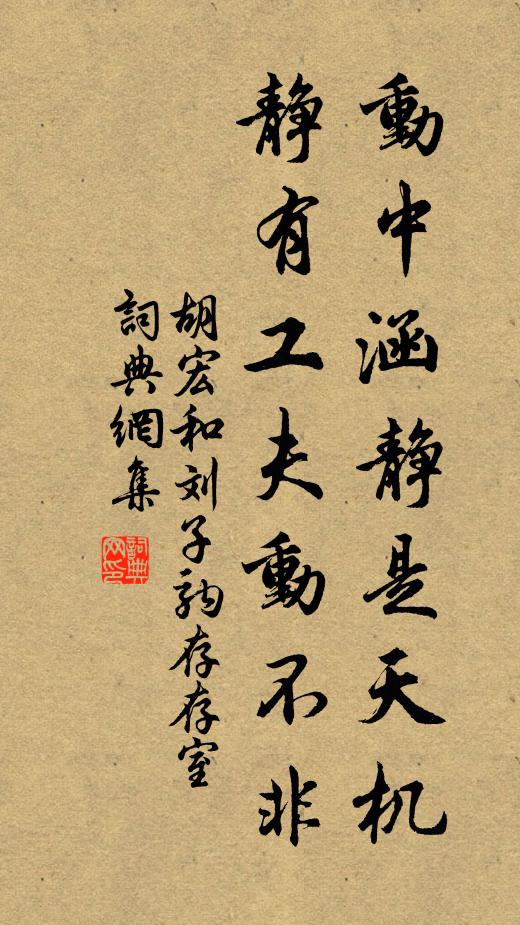 動中涵静是天机
静有工夫動不非
胡宏和刘子駒存存室
詞典網集
詞典网印